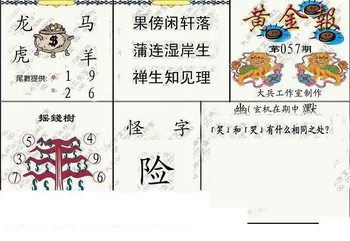 龙 马
虎 羊
尾數提供: 1 9
2 6
果傍闲轩落
蒲连湿岸生
禅生知见理
黄金報
第057期
大兵工作室制作
坐(玄机在期中)默
「笑」和「哭」有什么相同之处?
摇錢樹
⑤ ④
⑦ ⑨
① ③
怪 字
险